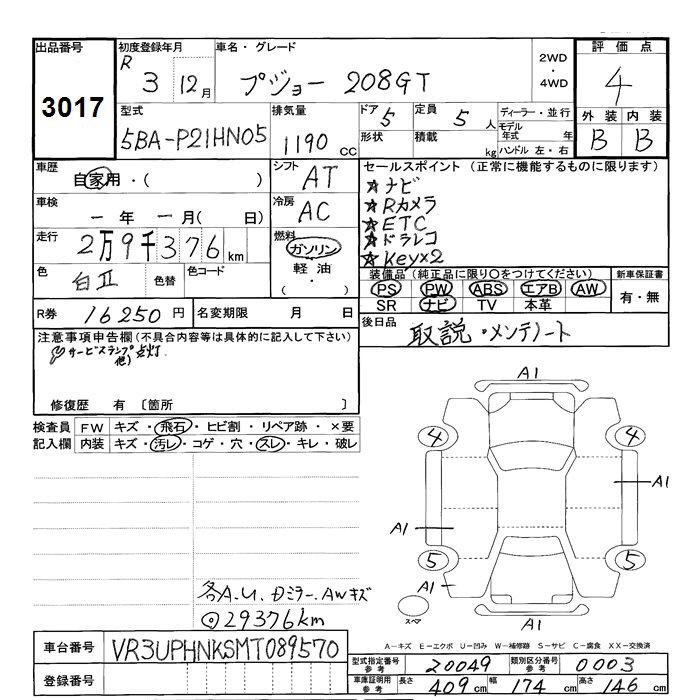 出品番号 3017
初度登録年月 R 3年 12月
車名・グレード プジョー 208GT
2WD・4WD
評価点 4
型式 5BA-P21HN05
排気量 1190 CC
ドア 5
形状
定員 5 人
積載 kg
ディーラー・並行
モデル年式 年
ハンドル 左・右
外装 B 内装 B
車歴 自家用・( )
シフト AT
車検 ー年ー月( 日)
冷房 AC
走行 2万9千376km
燃料 ガソリン
軽油
( ・ )
色 白II 色替 色コード
R券 16250円 名変期限 月 日
セールスポイント (正常に機能するものに限ります)
☆ナビ
☆Rカメラ
☆ETC
☆ドラレコ
☆Key×2
装備品(純正品に限り○をつけてください)
PS PW ABS エアB AW
SR ナビ TV 本革
新車保証書 有・無
後日品 取説・メンテノート
注意事項申告欄(不具合内容等は具体的に記入して下さい)
サービスランプ点灯.
他)
修復歴 有 〔箇所 〕
検査員記入欄
FW キズ・飛石・ヒビ割・リペア跡・×要
内装 キズ・汚レ・コゲ・穴・スレ・キレ・破レ
各A.U. Dミラー.AWキズ
◎29376km
A1
4 4
A1
A1
5 5
A1
スペア
A1
A−キズ E−エクボ U−凹み W−補修跡 S−サビ C−腐食 XX−交換済
車台番号 VR3UPHNKSMT089570
登録番号
型式指定番号参考 20049 類別区分番号参考 0003
車庫証明用参考 長さ 409cm 幅 174cm 高さ 146cm